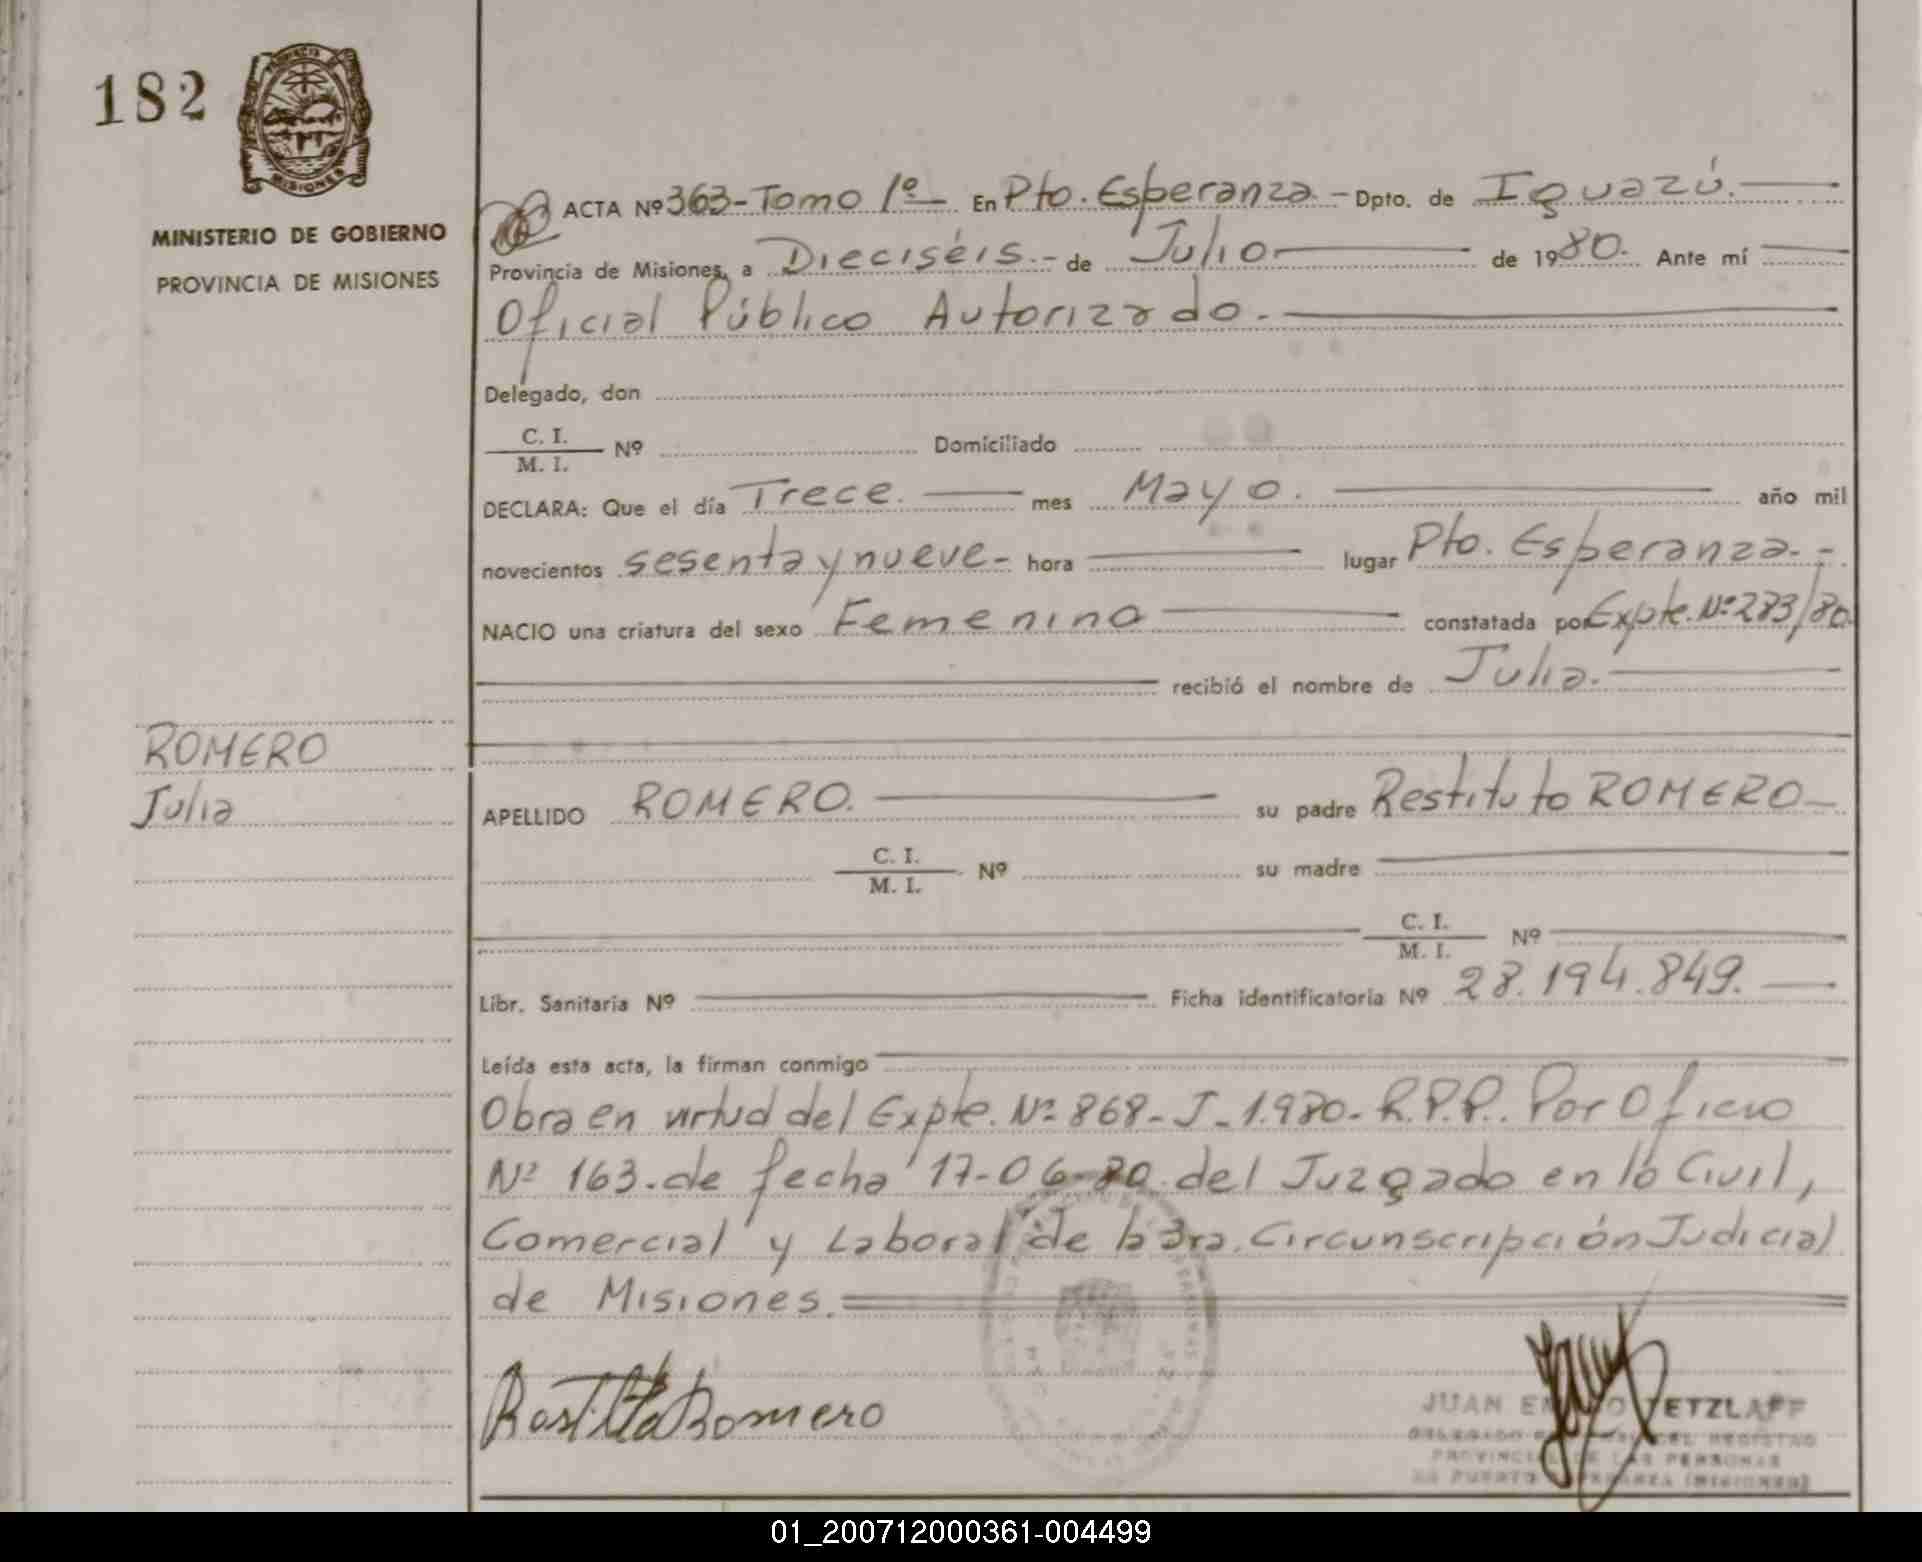 182
PROVINCIA
MISIONES
MINISTERIO DE GOBIERNO
PROVINCIA DE MISIONES
ROMERO
Julia
ACTA Nº 363-Tomo 1º- En Pto. Esperanza - Dpto. de Iguazú.
Provincia de Misiones, a Dieciséis.- de Julio de 1980. Ante mí
Oficial Público Autorizado.
Delegado, don
C. I.
M. I. Nº Domiciliado
DECLARA: Que el día Trece. mes Mayo. año mil
novecientos sesenta y nueve- hora lugar Pto. Esperanza.-
NACIO una criatura del sexo Femenino constatada por Expte. Nº 283/80.
recibió el nombre de Julia.
APELLIDO ROMERO. su padre Restituto ROMERO
C. I.
M. I. Nº su madre
C. I.
M. I. Nº
Libr. Sanitaria Nº Ficha identificatoria Nº 28.194.849.
Leída esta acta, la firman conmigo
Obra en virtud del Expte. Nº 868-J-1.980-R.P.P. Por Oficio
Nº 163.de fecha 17-06-80 del Juzgado en lo Civil,
Comercial y Laboral de la 3ra. Circunscripción Judicial
de Misiones.
Romero
JUAN TETZLAFF
DELEGADO DEL REGISTRO
PROVINCIAL DE LAS PERSONAS
PUERTO ESPERANZA (MISIONES)
01_200712000361-004499